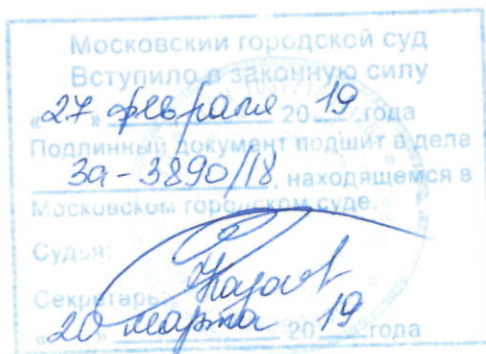 Московский городской суд
Вступило в законную силу
«27» февраля 2019 года
Подлинный документ подшит в деле
3а-3890/18, находящемся в
Московском городском суде.
Судья:
Секретарь:
«20» марта 2019 года